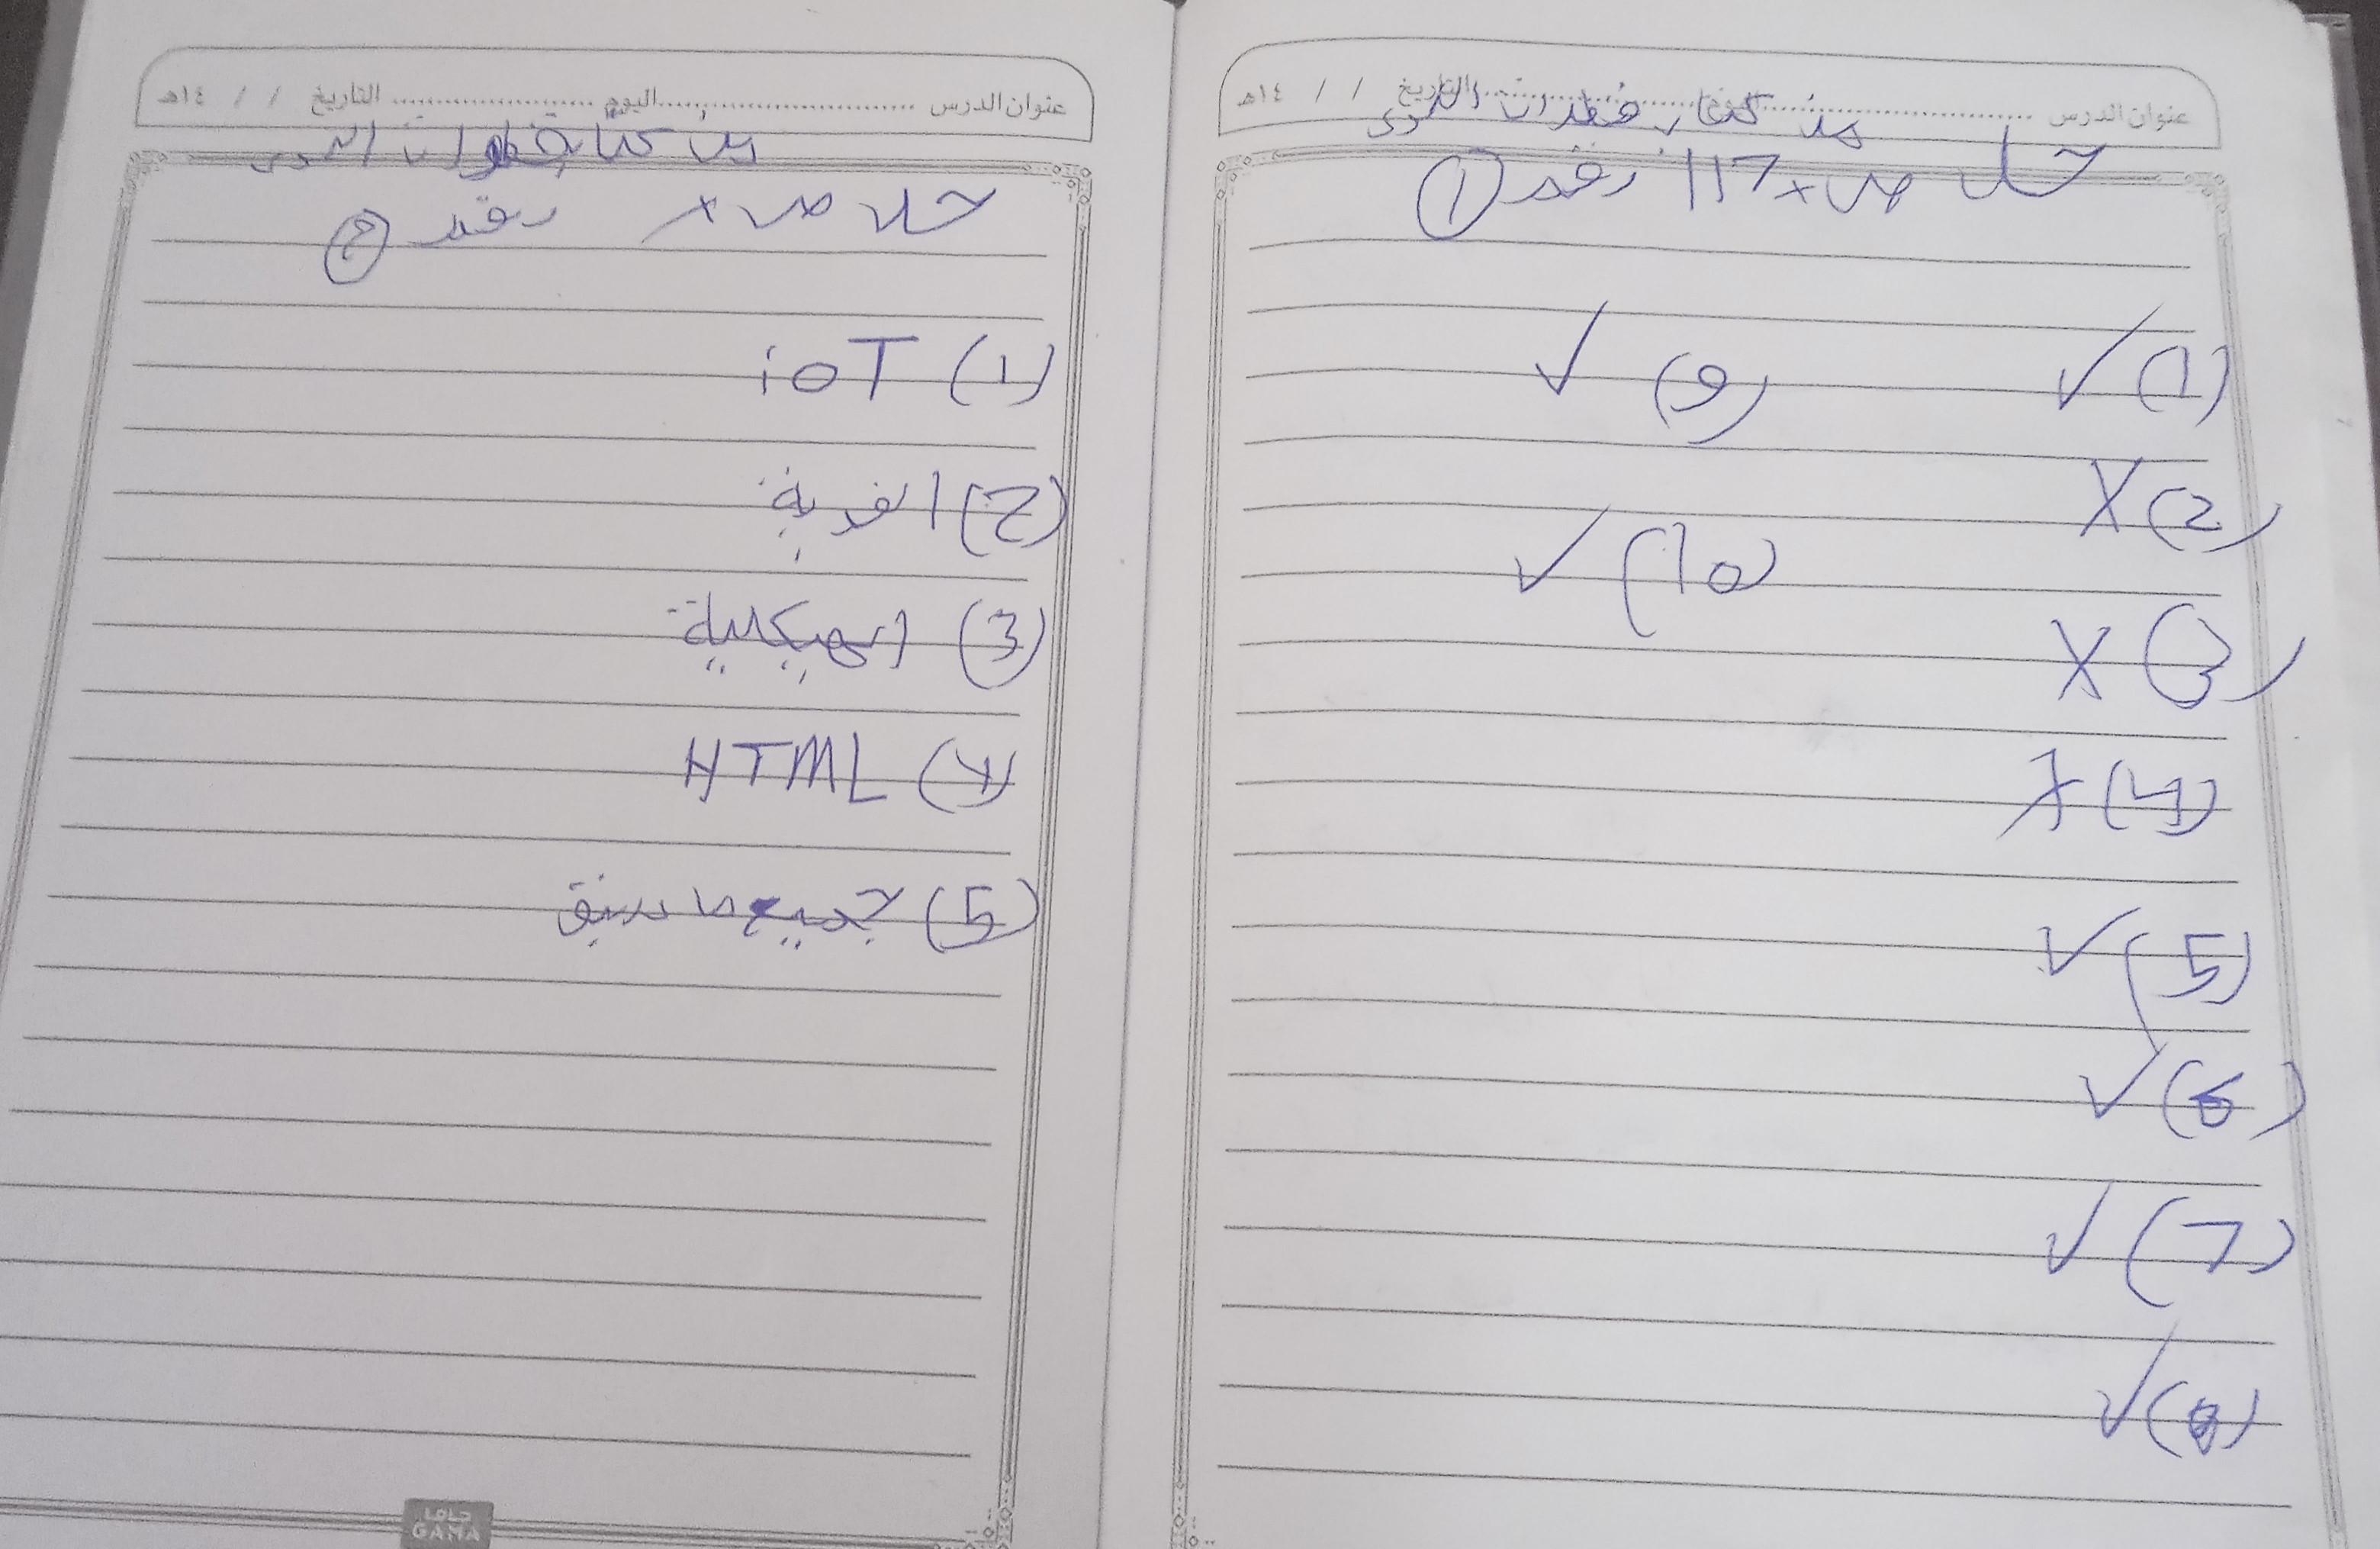 عنوان الدرس اليوم التاريخ / / ١٤هـ
من كتاب
حل ص 117 رقم (1)
(1) ✓
(2) X
(3) X
(4) X
(5) ✓
(6) ✓
(7) ✓
(8) ✓
(9) ✓
(10) ✓
عنوان الدرس اليوم التاريخ / / ١٤هـ
من كتاب
حل ص رقم
(1) ioT
(2)
(3) الهيكلية
(4) HTML
(5) جميع ما سبق
جاما
GAMA